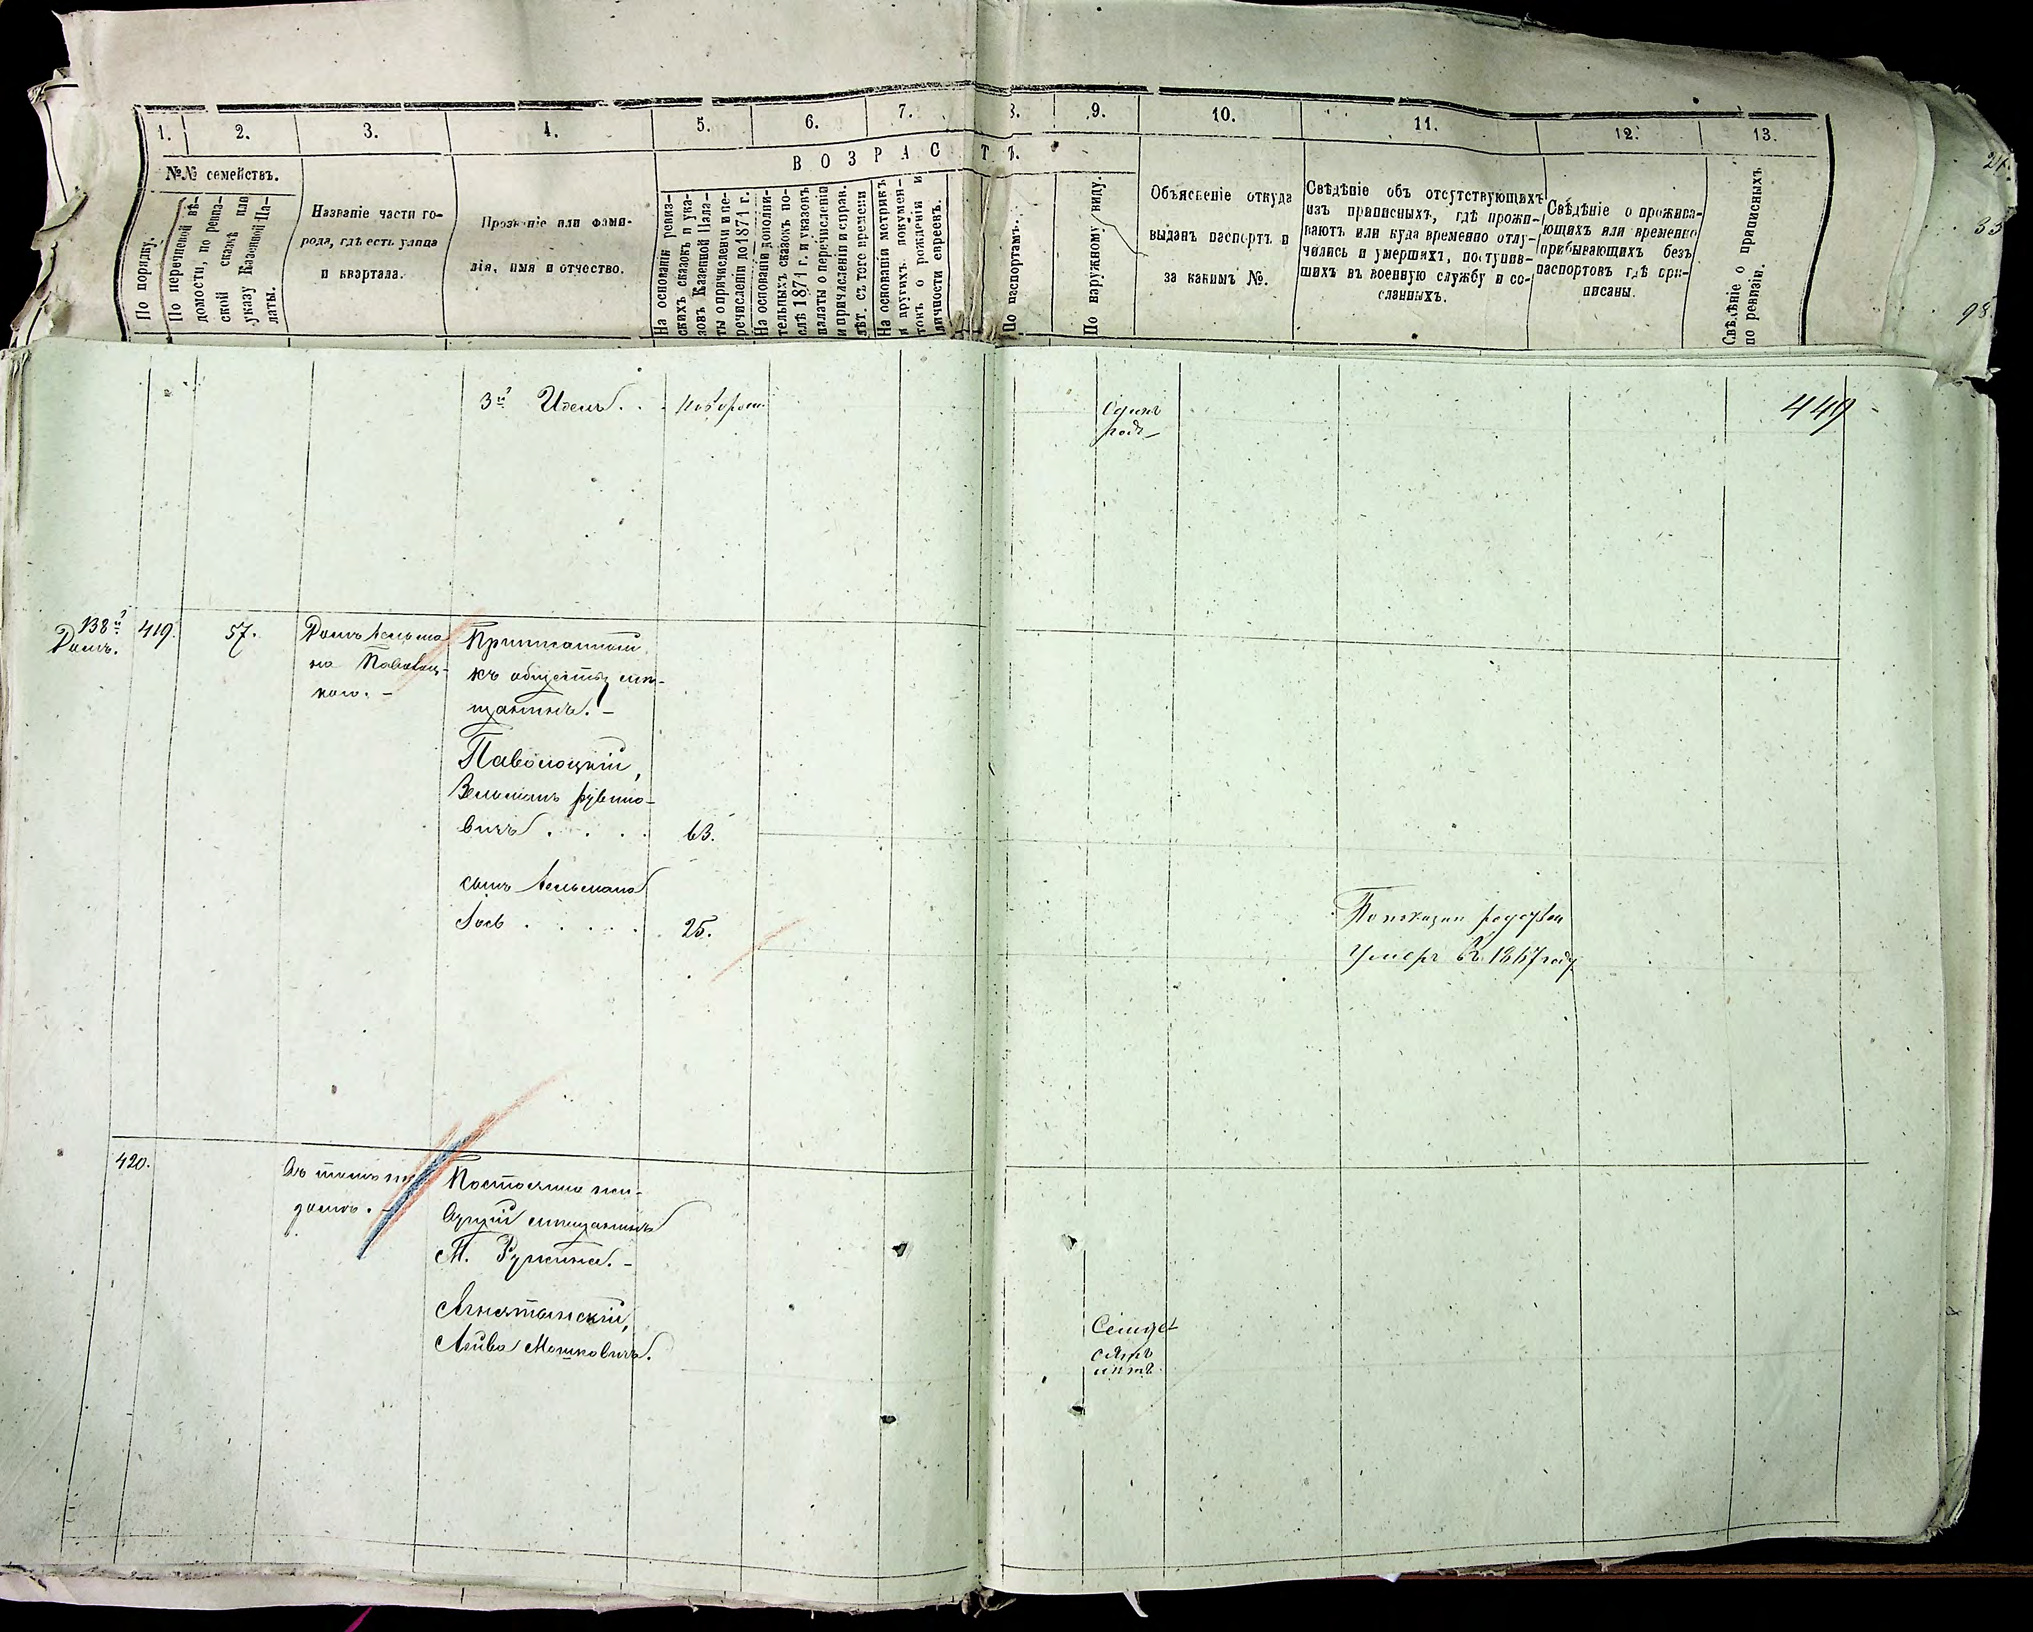 1. 2. 3. 4. 5. 6. 7. 8. 9. 10. 11. 12. 13.
№№ семействъ.
По порядку.
По перечневой вѣ-
домости, по ревиз-
ской сказкѣ или
указу Казенной Па-
латы.
Названіе части го-
рода, гдѣ есть улица
и квартала.
Прозваніе или фами-
лія, имя и отчество.
ВОЗРАСТЪ.
На основаніи ревиз-
скихъ сказокъ и ука-
зовъ Казенной Пала-
ты о причисленіи и пе-
речисленіи до 1871 г.
На основаніи дополни-
тельныхъ сказокъ по-
слѣ 1871 г. и указокъ
палаты о перечисленіи
и причисленіи и справ.
лѣт. съ того времени
На основаніи метрикъ
и другихъ докумен-
товъ о рожденіи и
личности евреевъ.
По паспортамъ.
По наружному виду.
Объясненіе откуда
выданъ паспортъ и
за какимъ №.
Свѣдѣніе объ отсутствующихъ
изъ приписныхъ, гдѣ прожи-
ваютъ или куда временно отлу-
чились и умершихъ, поступив-
шихъ въ военную службу и со-
сланныхъ.
Свѣдѣніе о прожива-
ющихъ или временно
прибывающихъ безъ
паспортовъ гдѣ при-
писаны.
Свѣдѣніе о приписныхъ
по ревизіи.
449
3й
Одинъ
годъ
138й
Домъ.
419.
57.
Домъ Зельма
на Паволоц-
каго. -
Приписанный
къ обществу мѣ-
щанинъ. -
Паволоцкій,
Зельманъ Рувино-
вичъ . . . . 63.
сынъ Зельмана
Іось . . . . . 25.
По показан родствен
Умеръ въ 1867 году
420.
Въ томъ же
домѣ. -
Постоянно жи-
вущій мѣщанинъ
М. Ружина. -
Агнятинскій,
Акива Мошковичъ.
Семьде
сятъ
лѣтъ